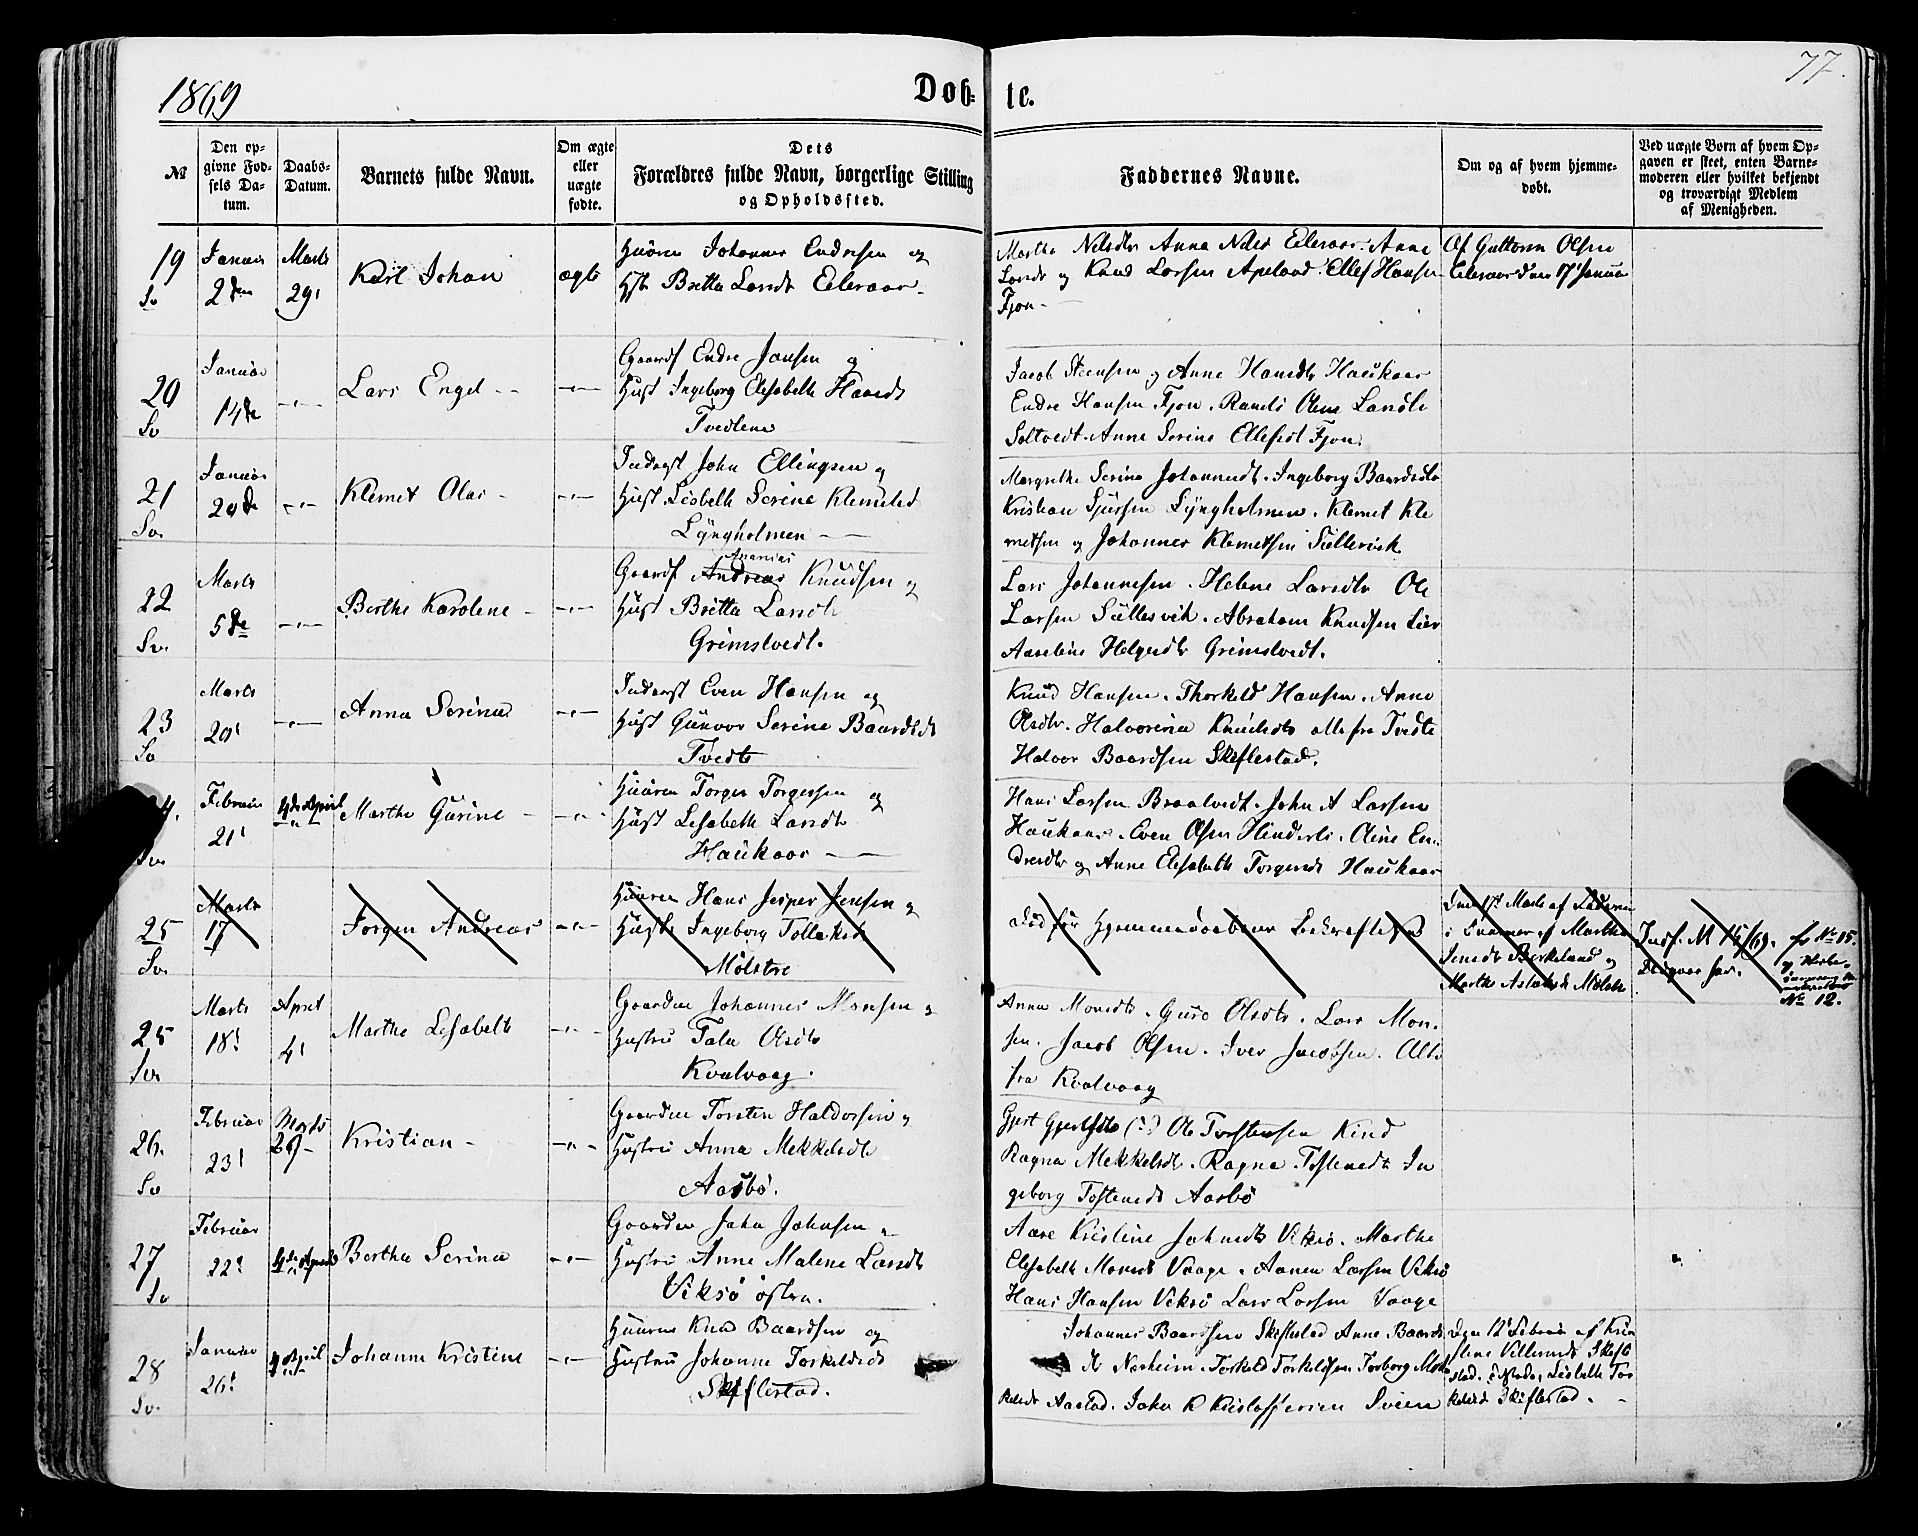 1869
Døb-
te.
77.
№
Den op-
givne Fød-
sels Da-
tum.
Daabs-
Datum.
Barnets fulde Navn.
Om ægte
eller
uægte
fødte.
Dets
Forældres fulde Navn, borgerlige Stilling
og Opholdssted.
Faddernes Navne.
Om og af hvem hjemme-
døbt.
Ved uægte Børn af hvem Op-
gaven er skeet, enten Barne-
moderen eller hvilket bekjendt
og troværdigt Medlem
af Menigheden.
19
Sv
Januar
2den
Marts
29'
Karl Johan
ægte
Johannes Endresen og
Britta Larsdt Eileraas
Marthe Nilsdtr Anna Eileraas. Anne
Larsdt og Knud Larsen Apeland. Ellef Hansen
Fjon
Af Guttorm Olsen
Eileraas den 17' Januar
20
Sv
Januar
14de
Lars Engel
Gaardf Endre Jansen og
Hust Ingeborg Elisabeth Hansdt
Tvedtene
Jacob Steensen og Anne Hansdtr Haukaas
Endre Hansen Fjon. Larsdt
Soltvedt. Anne Serine Ellefsdt Fjon.
21
Sv.
Januar
20de
Klemet Olai
Inderst John Ellingsen og
Hust Lisbeth Serine Klemetsd
Lyngholmen
Margrethe Serina Johannesdt. Ingeborg Baardsdtr
Kristian Sjursen Lyngholmen. Klemet Kle
metsen og Johannes Klemetsen
22
Sv.
Marts
5de
Berthe Karolene
Ananias
Gaardf Andreas Knudsen og
Hust Britta Larsdtr
Grimstvedt.
Lars Johannesen. Helene Larsdtr Ole
Larsen. Abraham Knudsen Lier
Helgesdtr Grimstvedt.
23
Sv
Marts
20'
Anna Serina
Inderst Even Hansen og
Hust Gunvor Serine Baardsdt
Tvedte
Knud Hansen. Thorkeld Hansen. Anne
Olsdtr. Halvorina Knudsdtr alle fra Tvedte
Halvor Baardsen Skiflestad.
4.
Sv.
Februar
21'
4de April
Marthe Gurine
Torger Torgersen og
Hust Lisabeth Larsdtr
Haukaas
Hans Larsen Braatvedt. John A Larsen
Haukaas. Even Olsen Hinderli. Oline En
dresdtr og Anne Elisabeth Torgersdt Haukaas
25
Sv.
Marts
17
Jørgen Andreas
Hans Jesper Jensen og
Ingeborg Tollaksdt
Mølstre
Død før Hjemmedaabens Bekræftelse
Marts af Faderen
i Nærvær af Marthe
Birkeland og
Marthe Aslaksdt Mølstre
№ 15.
№ 12.
25
Sv
Marts
18'
April
4'
Marthe Lisabeth
Gaardm Johannes Monsen og
Hustru Tala Olsdtr
Kvalvaag.
Anna Monsdtr. Guro Olsdtr. Lars Mon-
sen. Jacob Olsen. Iver Jacobsen. Alle
fra Kvalvaag
26.
Sv
Februar
23'
Marts
29
Kristian
Gaardm Torsten Haldorsen og
Hustru Anna Mekkelsdtr
Aasbø.
Gjert Ole Torstensen Kind
Ragna Mekkelsdt. Ragna Tostensdt In
geborg Tostensdt Aasbø
27
Sv
Februar
22'
4de April
Berthe Serina
Gaardm John Johnsen
Hustru Anne Malene Larsdtr
Viksø østre.
Kristine Johnsdt Viksø. Marthe
Elisabeth Monsdt Vaage. Larsen Viksø
Hans Hansen Viksø Lars Larsen Vaage
28
Sv.
Januar
26'
4de April
Johanne Kristine
Knud Baardsen og
Hustru Johanne Torkeldsdt
Skiflestad.
Johannes Baardsen Skiflestad Anne Baards
dt Nesheim. Torkeld Torkeldsen Torborg
Aastad. John K Kristoffersen Sveen
Den 12' Februar af Kri
stine Skifle
stad. Lisbeth Tor
keldsdt Skiflestad.